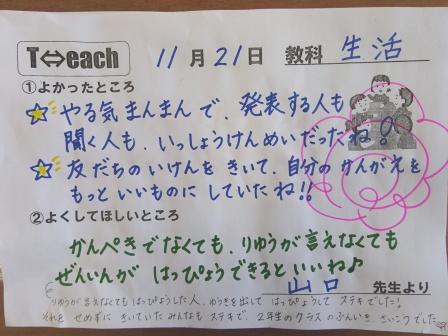 T⇔each 11月21日 教科 生活
①よかったところ
☆やる気まんまんで、発表する人も
聞く人も、いっしょうけんめいだったね!
☆友だちのいけんをきいて、自分のかんがえを
もっといいものにしていたね!!
②よくしてほしいところ
かんぺきでなくても、りゆうが言えなくても
ぜんいんが はっぴょうできるといいね♪
山口 先生より
りゆうが言えなくてもはっぴょうした人、ゆうきを出して はっぴょうして ステキでした!
それを せめずに きいていた みんなも ステキで、2年生のクラスの ふんいき、さいこうでした